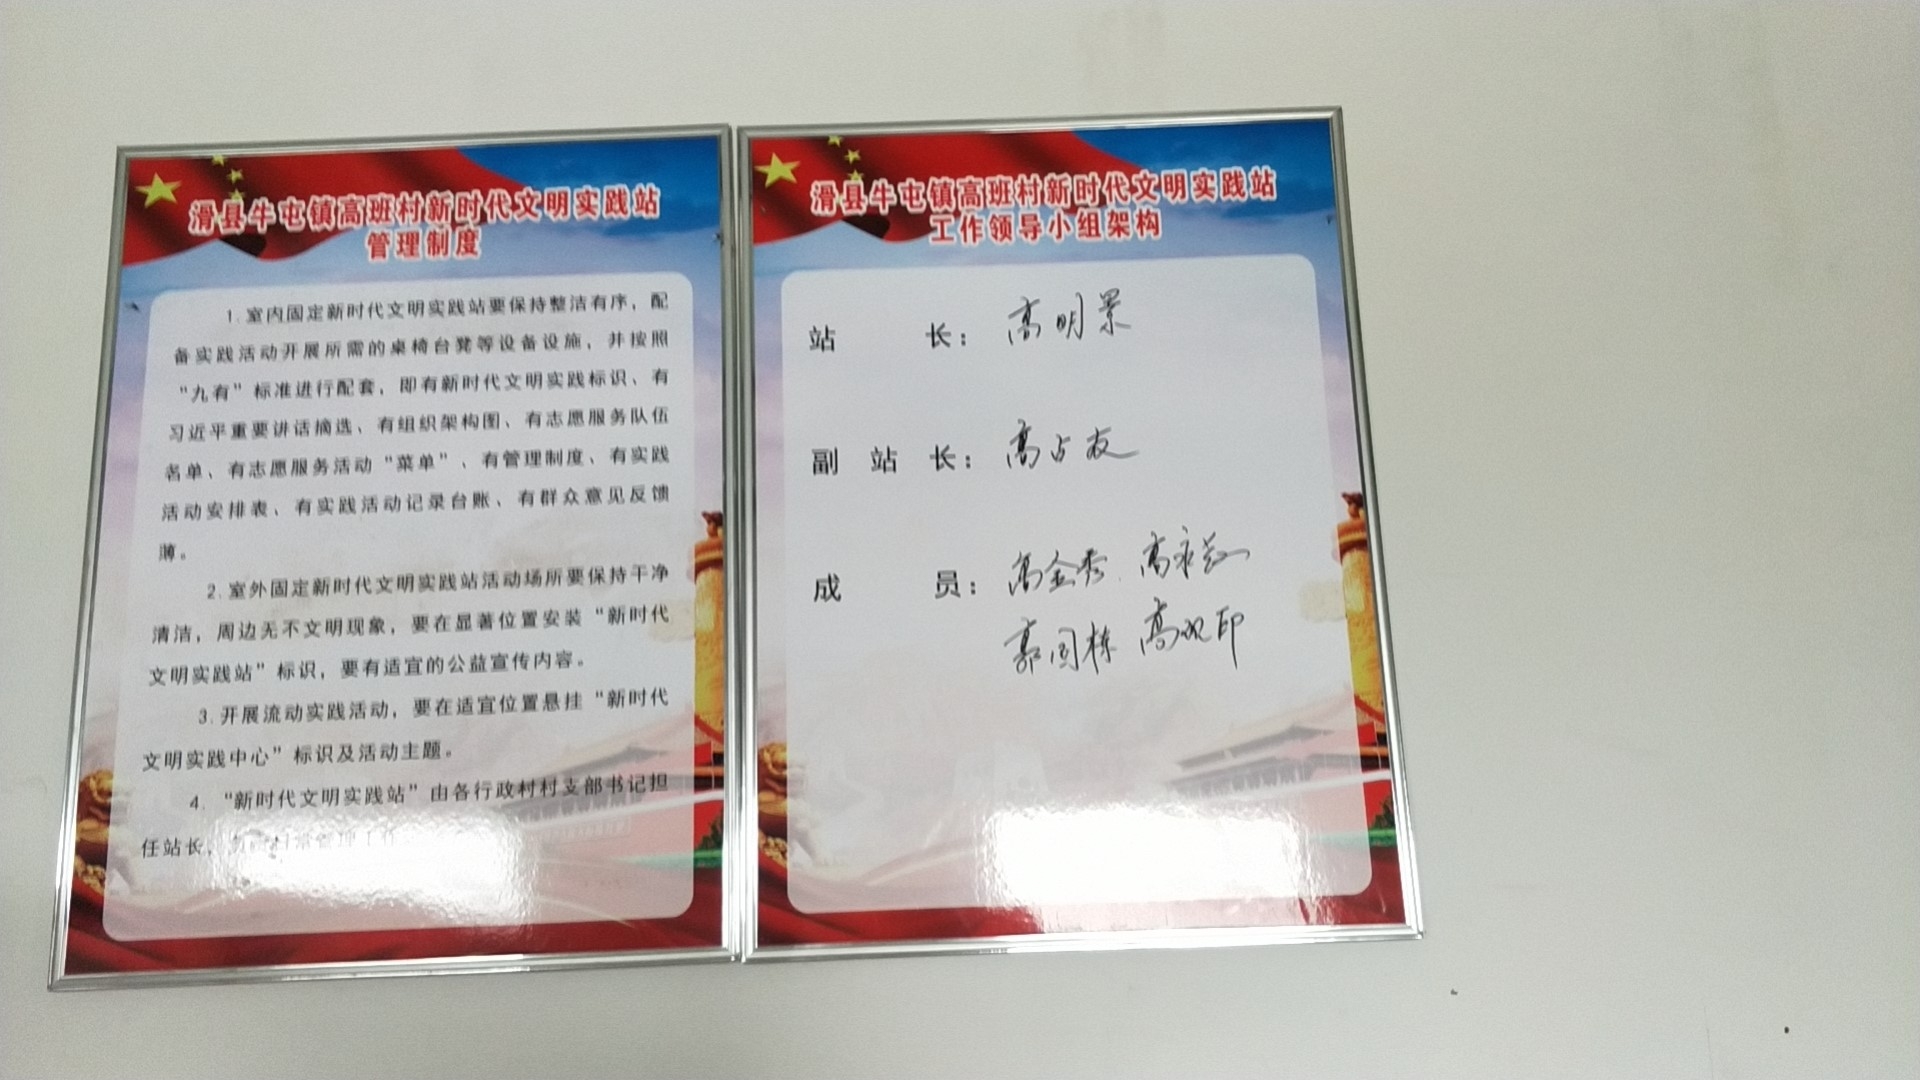 滑县牛屯镇高班村新时代文明实践站
管理制度
1.室内固定新时代文明实践站要保持整洁有序，配
备实践活动开展所需的桌椅台凳等设备设施，并按照
“九有”标准进行配套，即有新时代文明实践标识、有
习近平重要讲话摘选、有组织架构图、有志愿服务队伍
名单、有志愿服务活动“菜单”、有管理制度、有实践
活动安排表、有实践活动记录台账、有群众意见反馈
薄。
2.室外固定新时代文明实践站活动场所要保持干净
清洁，周边无不文明现象，要在显著位置安装“新时代
文明实践站”标识，要有适宜的公益宣传内容。
3.开展流动实践活动，要在适宜位置悬挂“新时代
文明实践中心”标识及活动主题。
4.“新时代文明实践站”由各行政村村支部书记担
任站长，负责日常管理工作
滑县牛屯镇高班村新时代文明实践站
工作领导小组架构
站 长：高明景
副 站 长：高占友
成 员：高金秀 高
郭国栋 高 印